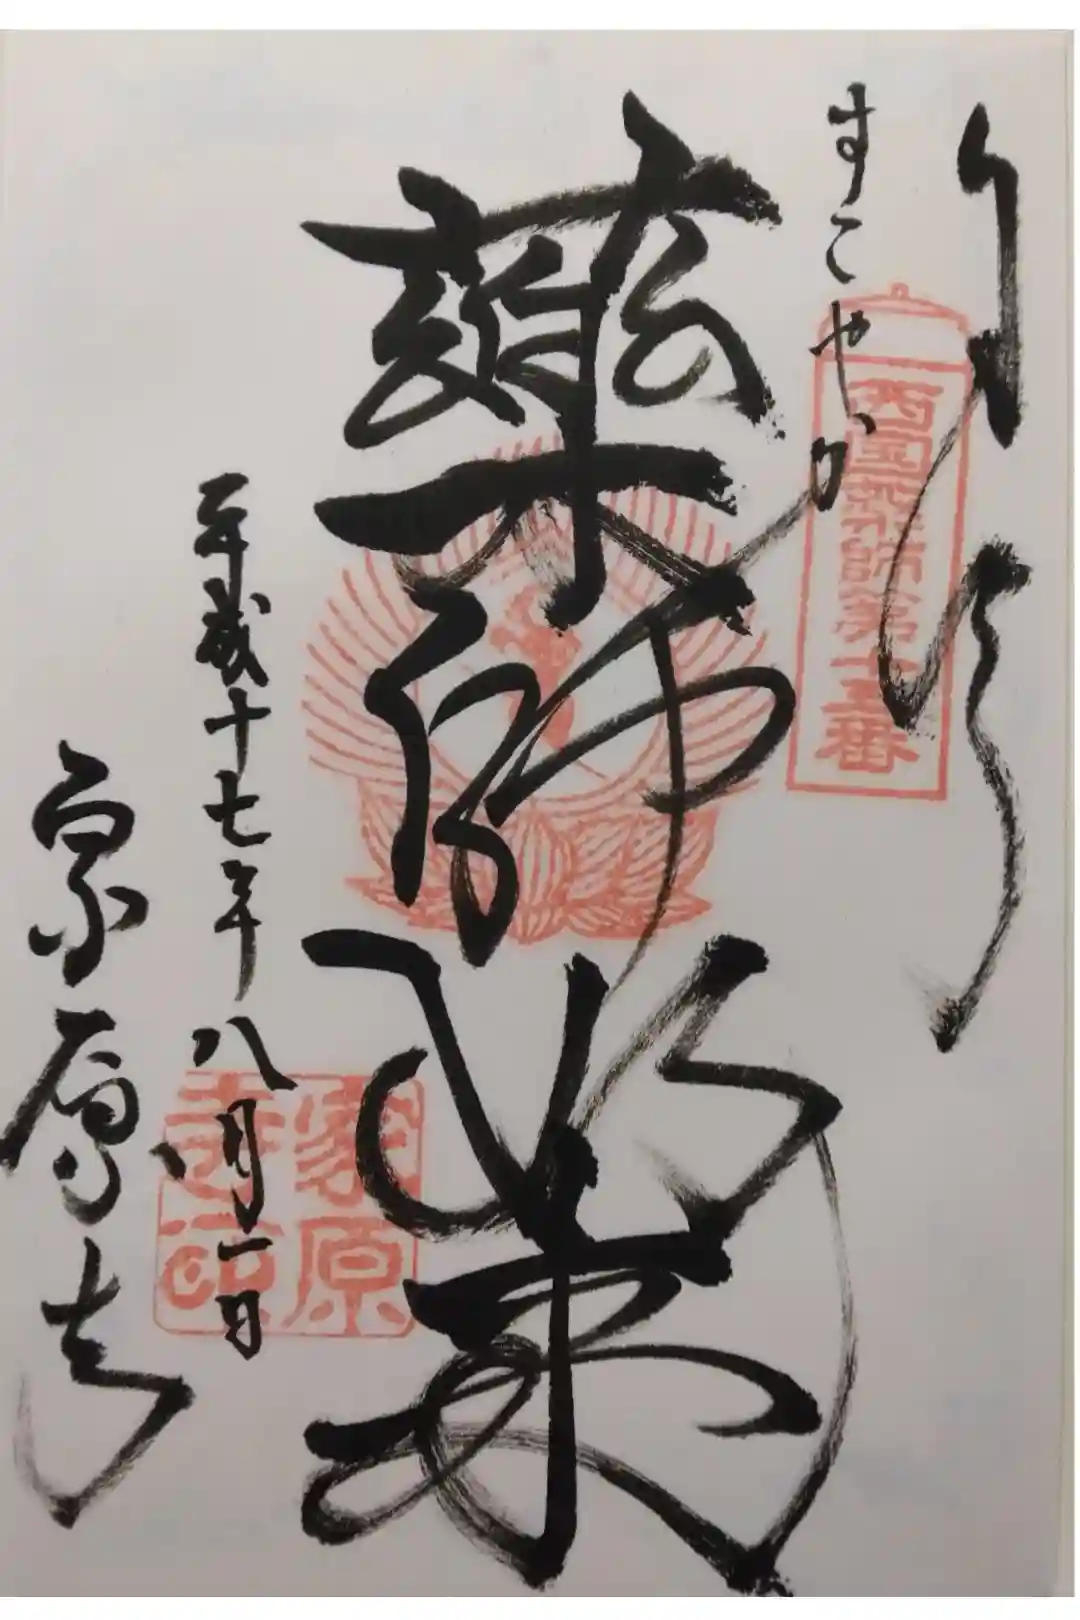 すこやか
西国薬師第十五番
藥師如来
平成十七年八月一日
家原寺
家原寺印